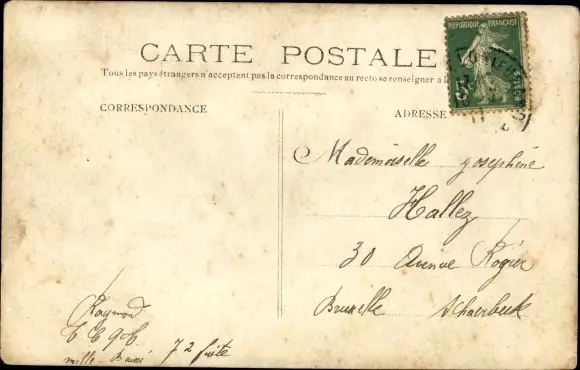 CARTE POSTALE
Tous les pays étrangers n'acceptent pas la correspondance au recto se renseigner à la
CORRESPONDANCE
ADRESSE
REPUBLIQUE FRANÇAISE
5
Mademoiselle Josephine
Hallez
30 Avenue Rogier
Bruxelle Schaerbeek
Raymond
mille Baisé 72 suite